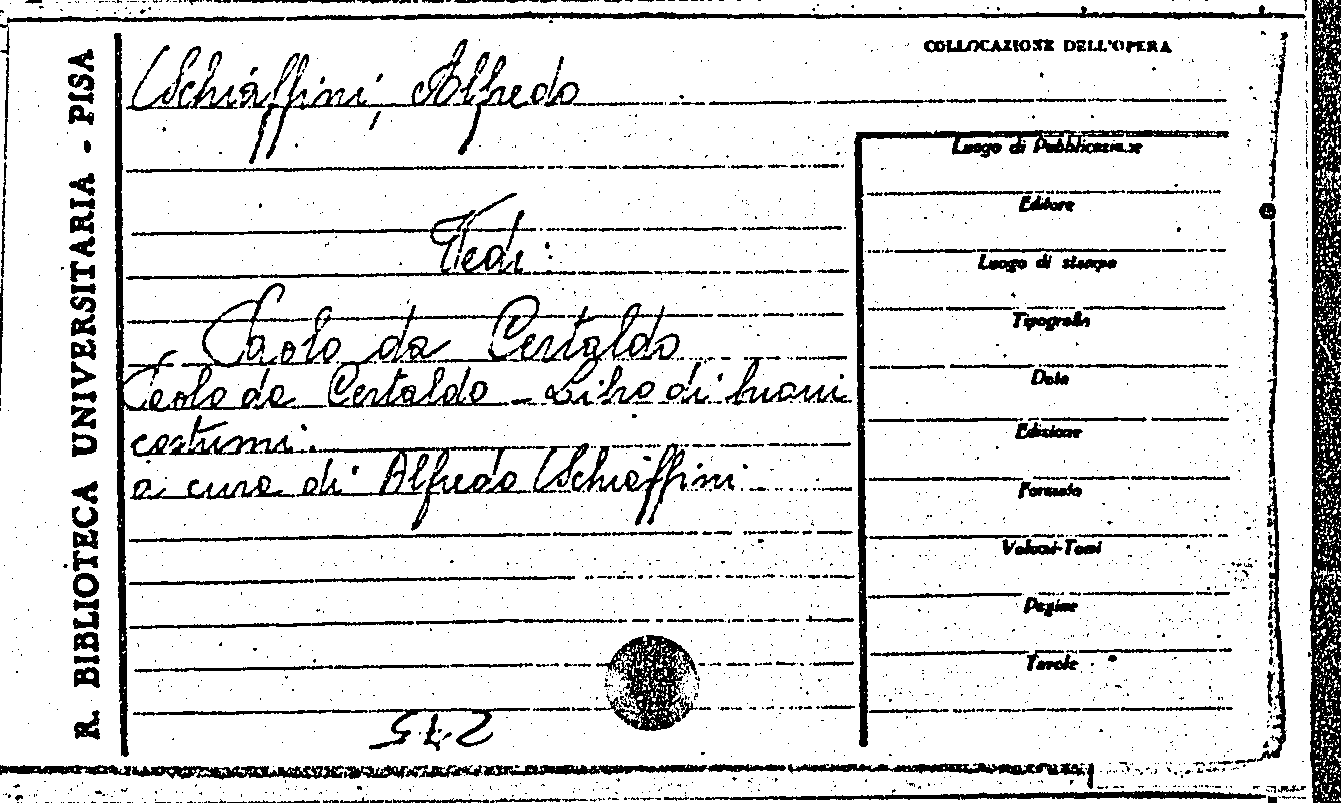 R. BIBLIOTECA UNIVERSITARIA - PISA
COLLOCAZIONE DELL'OPERA
Schiaffini, Alfredo
Vedi:
Paolo da Certaldo
Paolo da Certaldo - Libro di buoni
costumi.
a cura di Alfredo Schiaffini
Luogo di Pubblicazione
Editore
Luogo di stampa
Tipografia
Data
Edizione
Formato
Volumi-Tomi
Pagine
Tavole